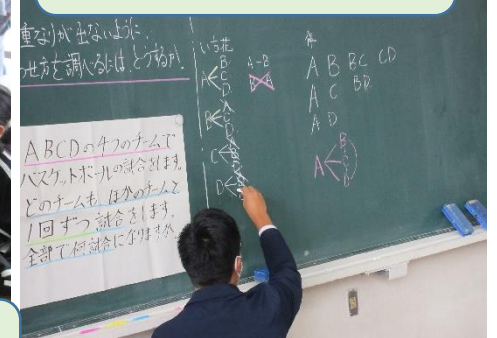 重なりが出ないように、
せ方を調べるには、どうするか。
ABCDの4つのチームで
バスケットボールの試合をします。
どのチームも、ほかのチームと
1回ずつ試合をします。
全部で何試合になりますか。
A B C D
A-B
B-A
B A C D
C A
D
A B BC CD
A C BD
A D
A B C D